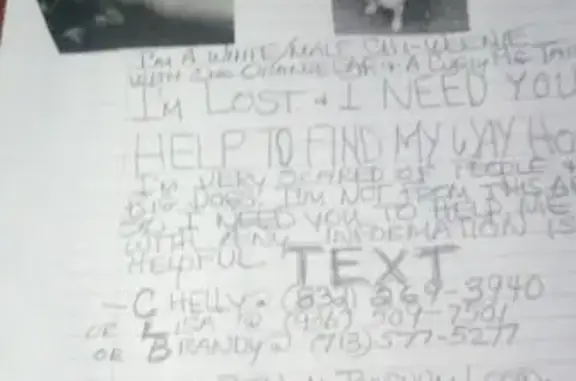 I'M A WHITE/MALE CHI-WEENIE
WITH ONE ORANGE EAR + A CURLY
I'M LOST + I NEED YOU
HELP TO FIND MY WAY HO
I'M VERY SCARED OF PEOPLE +
BIG DOGS. I'M NOT FROM THIS
SO I NEED YOU TO HELP ME
WITH ANY INFORMATION IS
HELPFUL TEXT
- CHELLY @ 269-3940
OR LISA @
OR BRANDY @ (713) 577-5277